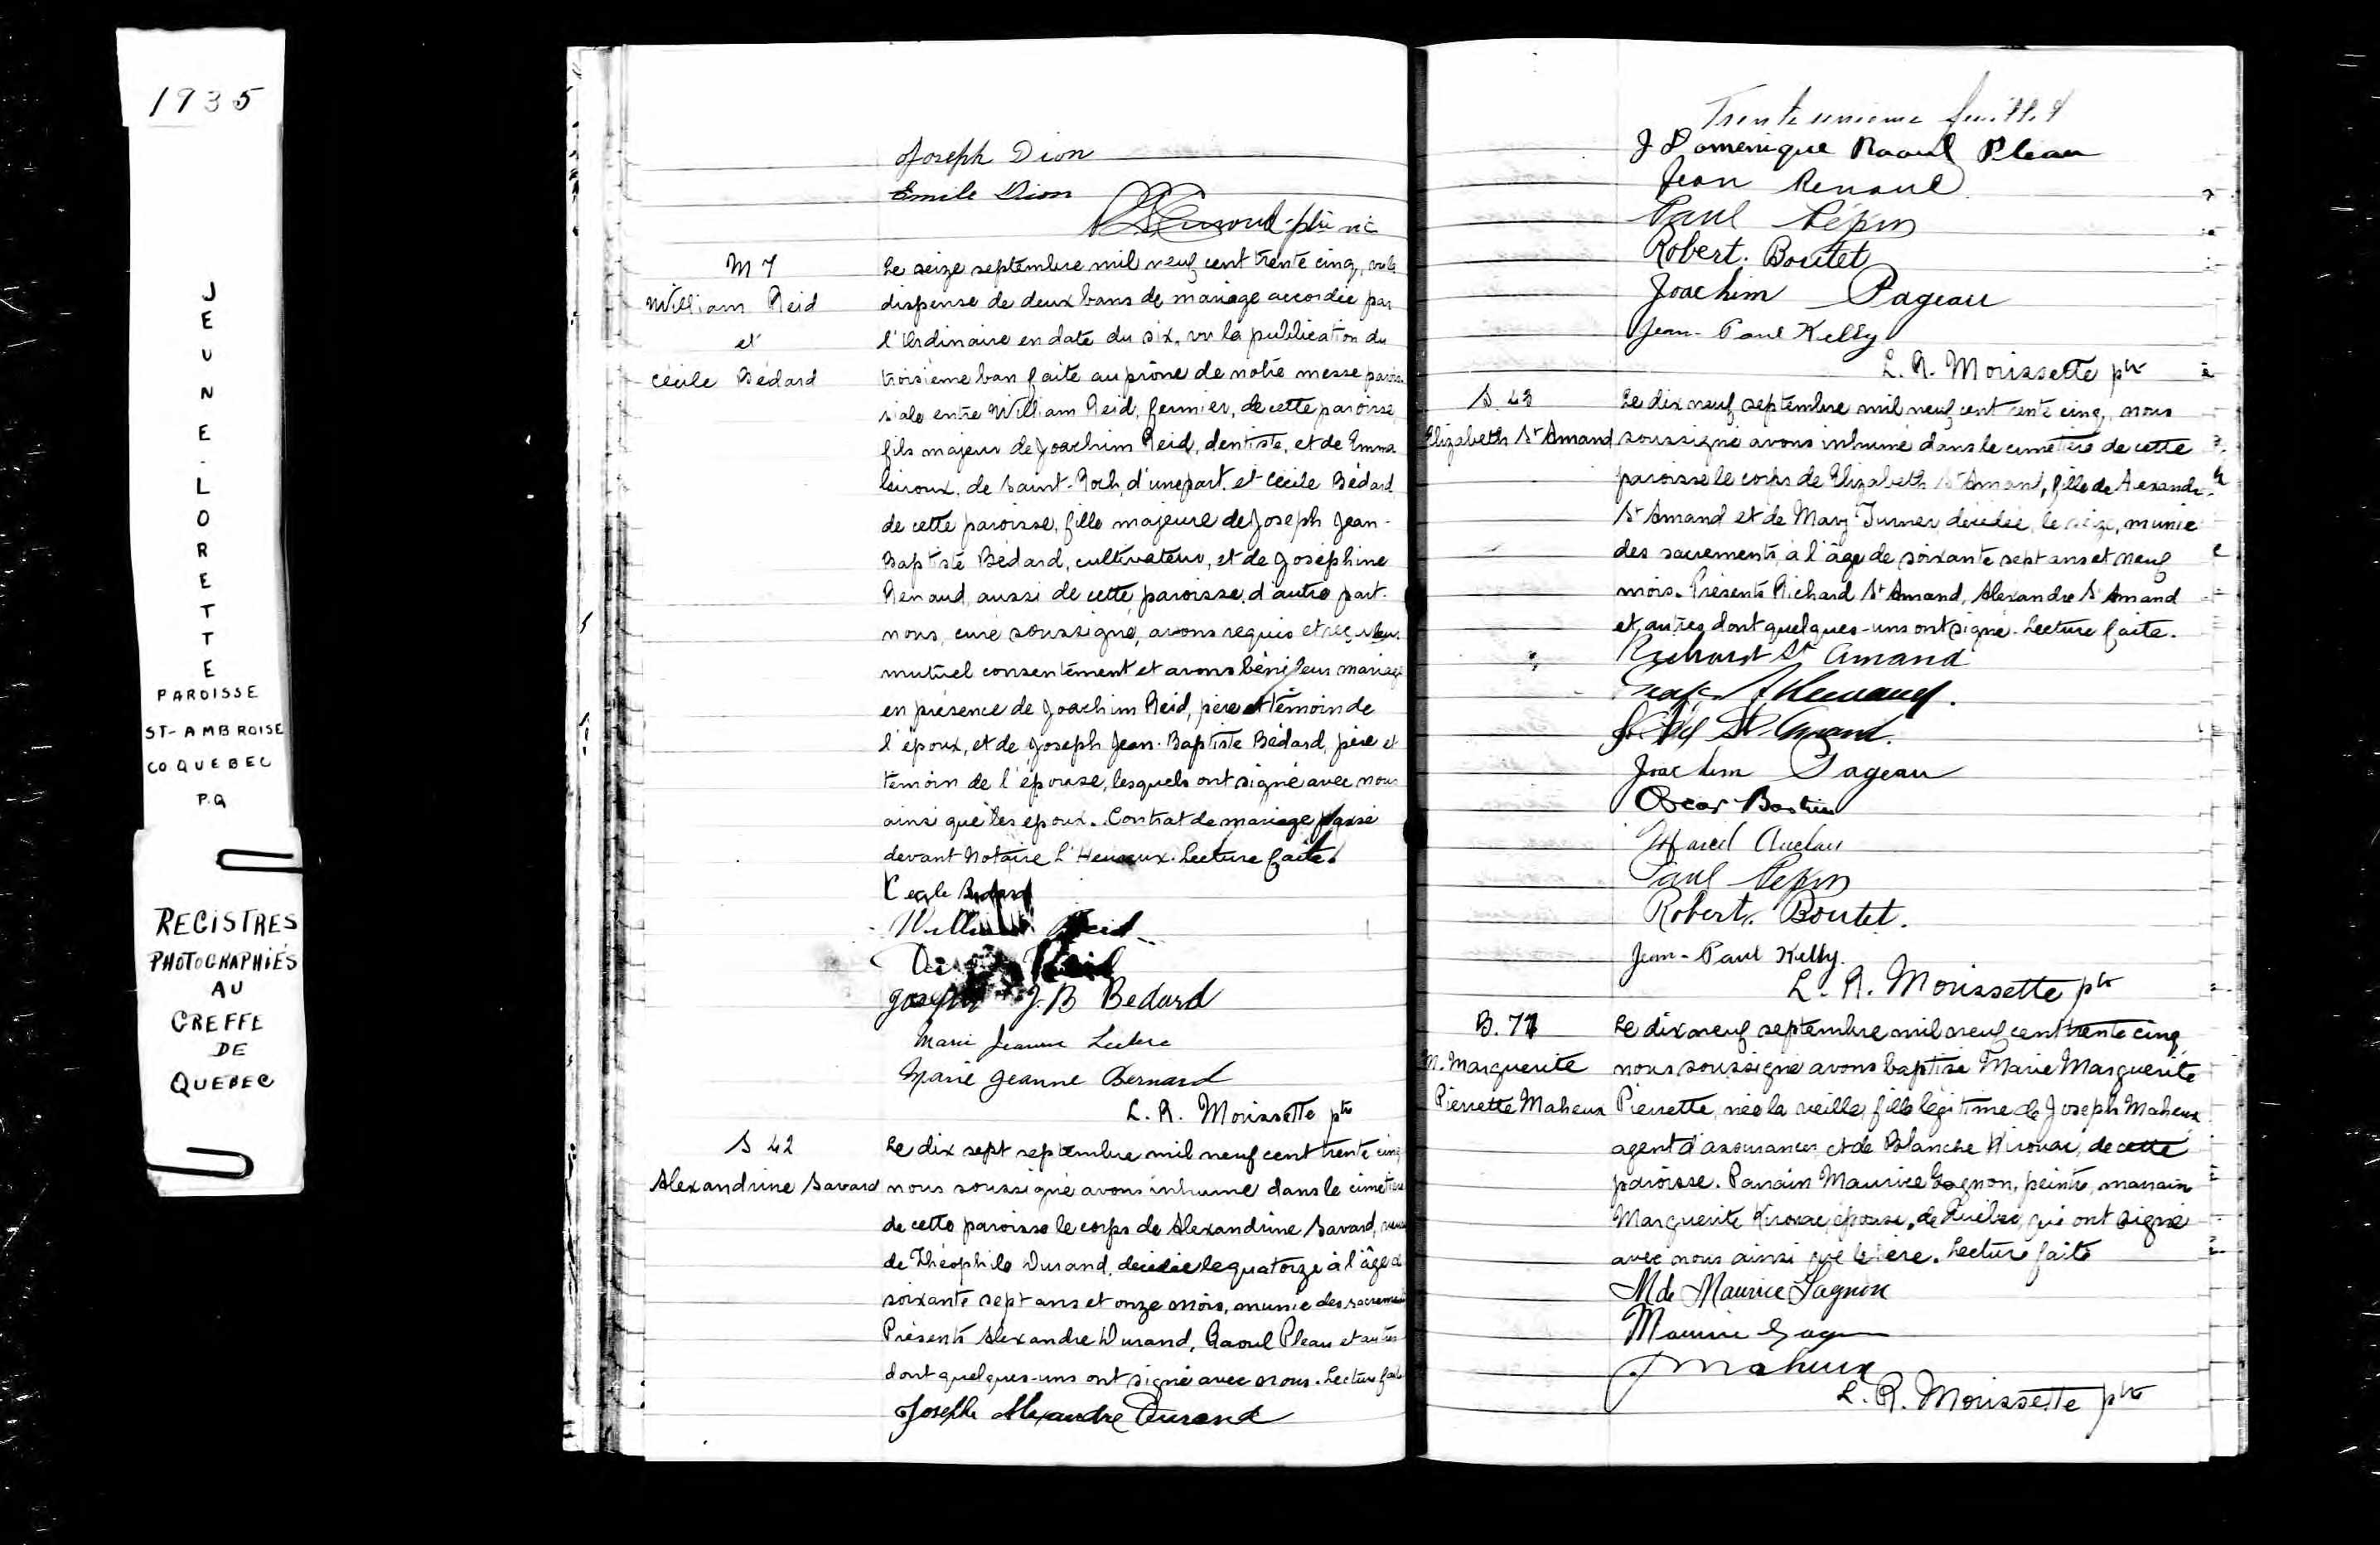 1935
JEUNE-LORETTE
PAROISSE
ST-AMBROISE
CO QUEBEC
P.Q
REGISTRES
PHOTOGRAPHIÉS
AU
GREFFE
DE
QUEBEC
Joseph Dion
Emile Dion
ptre vic
M 7
William Reid
et
Cécile Bédard
Le seize septembre mil neuf cent trente cinq, vu la
dispense de deux bans de mariage accordée par
l'Ordinaire en date du six, vu la publication du
troisième ban faite au prône de notre messe parois
siale entre William Reid, fermier, de cette paroisse,
fils majeur de Joachim Reid, dentiste, et de Emma
Giroux, de Saint-Roch, d'une part, et Cécile Bédard
de cette paroisse, fille majeure de Joseph Jean-
Baptiste Bédard, cultivateur, et de Joséphine
Renaud, aussi de cette paroisse, d'autre part.
nous, curé soussigné, avons requis et reçu leur
mutuel consentement et avons béni leur mariage
en présence de Joachim Reid, père et témoin de
l'époux, et de Joseph Jean-Baptiste Bédard, père et
témoin de l'épouse, lesquels ont signé avec nous
ainsi que les époux. Contrat de mariage passé
devant Notaire L'Heureux. Lecture faite.
Cecile Bedard
William Reid
Reid
Joseph J.B Bedard
Marie Jeanne Leclerc
Marie Jeanne Bernard
L. R. Morissette ptr
S 42
Alexandrine Savard
Le dix sept septembre mil neuf cent trente cinq
nous soussigné avons inhumé dans le cimetière
de cette paroisse le corps de Alexandrine Savard, veuve
de Théophile Durand, décédée le quatorze à l'âge de
soixante sept ans et onze mois, munie des sacrements
Présents Alexandre Durand, Raoul Pleau et autres
dont quelques-uns ont signé avec nous. Lecture faite
Joseph Alexandre Durand
Trente unieme feuillet
J Domenique Raoul Pleau
Jean Renaud
Paul Pépin
Robert Boutet
Joachim Pageau
Jean-Paul Kelly
L. R. Morissette ptr
S. 43
Elizabeth St Amand
Le dix neuf septembre mil neuf cent trente cinq, nous
soussigné avons inhumé dans le cimetière de cette
paroisse le corps de Elizabeth St Amand, fille de Alexandre
St Amand et de Mary Turner décédée, le seize, munie
des sacrements, à l'âge de soixante sept ans et neuf
mois. Présents Richard St Amand, Alexandre St Amand
et autres dont quelques-uns ont signé. Lecture faite.
Richard St Amand
St Amand.
Joachim Pageau
Oscar Bastien
Marcel Auclair
Paul Pepin
Robert Boutet.
Jean-Paul Kelly.
L. R. Morissette ptr
B. 71
M. Marguerite
Pierrette Maheux
Le dix neuf septembre mil neuf cent trente cinq,
nous soussigné avons baptisé Marie Marguerite
Pierrette, née la veille, fille légitime de Joseph Maheux
agent d'assurances et de Blanche Kirouac, de cette
paroisse. Parrain Maurice Gagnon, peintre, marraine
Marguerite Kirouac, épouse, de Québec, qui ont signé
avec nous ainsi que le père. Lecture faite
Mde Maurice Gagnon
Maurice Gagnon
J Maheux
L. R. Morissette ptr